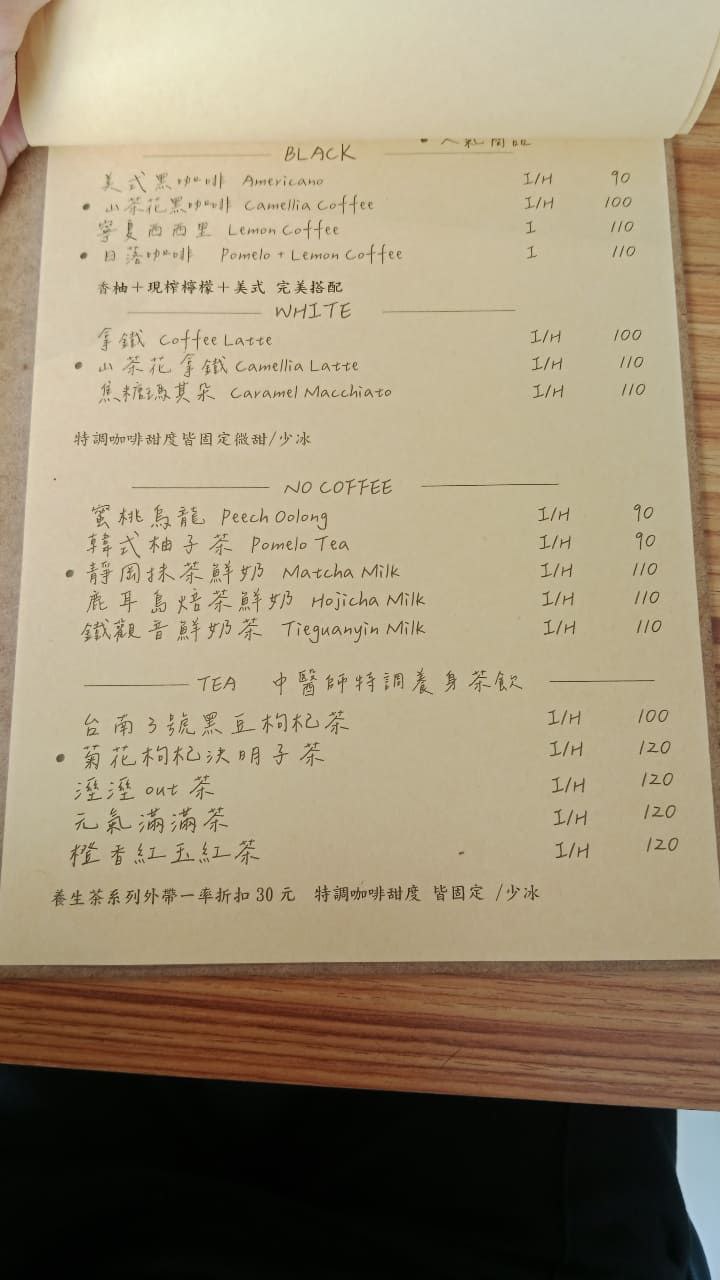 • 人氣商品
BLACK
美式黑咖啡 Americano I/H 90
• 山茶花黑咖啡 Camellia Coffee I/H 100
寧夏西西里 Lemon Coffee I 110
• 日落咖啡 Pomelo + Lemon Coffee I 110
香柚+現榨檸檬+美式 完美搭配
WHITE
拿鐵 Coffee Latte I/H 100
• 山茶花拿鐵 Camellia Latte I/H 110
焦糖瑪其朵 Caramel Macchiato I/H 110
特調咖啡甜度皆固定微甜/少冰
NO COFFEE
蜜桃烏龍 Peech Oolong I/H 90
韓式柚子茶 Pomelo Tea I/H 90
• 靜岡抹茶鮮奶 Matcha Milk I/H 110
鹿耳島焙茶鮮奶 Hojicha Milk I/H 110
鐵觀音鮮奶茶 Tieguanyin Milk I/H 110
TEA 中醫師特調養身茶飲
台南3號黑豆枸杞茶 I/H 100
• 菊花枸杞決明子茶 I/H 120
溼溼out茶 I/H 120
元氣滿滿茶 I/H 120
橙香紅玉紅茶 I/H 120
養生茶系列外帶一率折扣30元 特調咖啡甜度 皆固定 /少冰